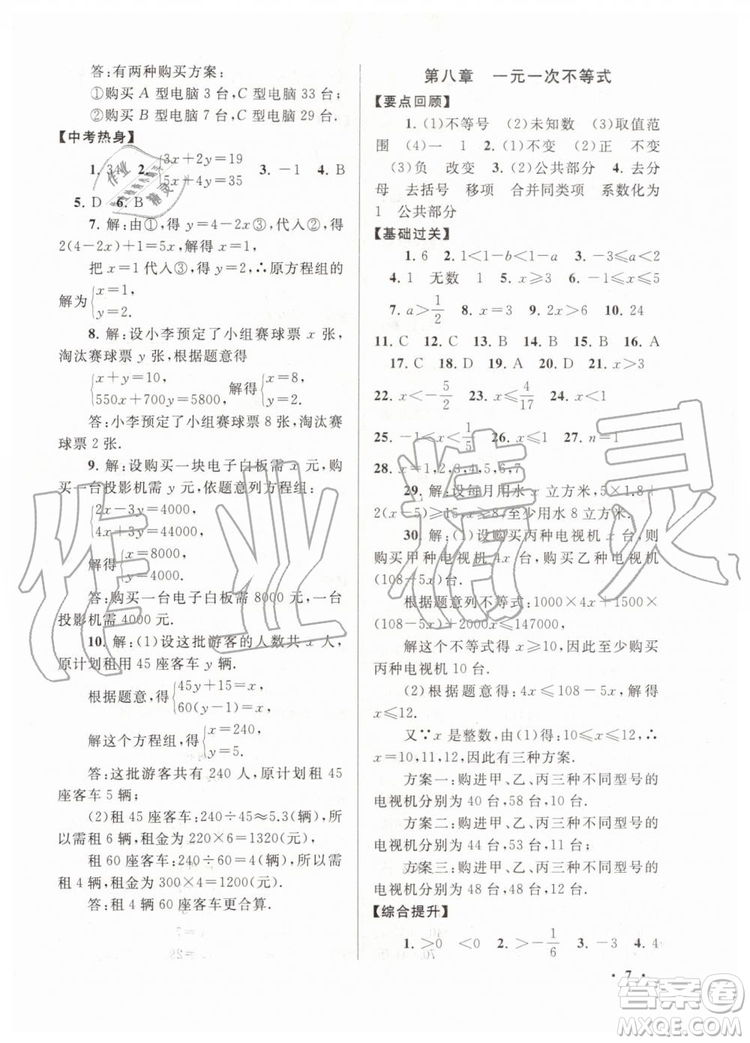 答:有两种购买方案:
①购买 A 型电脑 3 台,C 型电脑 33 台;
②购买 A 型电脑 7 台,C 型电脑 29 台.
【中考热身】
1. 3 2. {3x+2y=19 x+4y=35 3. -1 4. B
5. D 6. B
7. 解:由①,得 y=4-2x③,代入②,得
2(4-2x)+1=5x,解得 x=1,
把 x=1 代入③,得 y=2,∴原方程组的
解为{x=1, y=2.
8. 解:设小李预定了小组赛球票 x 张,
淘汰赛球票 y 张.根据题意得
{x+y=10, 550x+700y=5800, 解得{x=8, y=2.
答:小李预定了小组赛球票 8 张,淘汰赛
球票 2 张.
9. 解:设购买一块电子白板需 x 元,购
买一台投影机需 y 元,依题意列方程组:
{2x-3y=4000, 4x+3y=44000,
解得{x=8000, y=4000.
答:购买一台电子白板需 8000 元,一台
投影机需 4000 元.
10. 解:(1)设这批游客的人数共 x 人,
原计划租用 45 座客车 y 辆.
根据题意,得{45y+15=x, 60(y-1)=x,
解这个方程组,得{x=240, y=5.
答:这批游客共 240 人,原计划租 45
座客车 5 辆;
(2)租 45 座客车:240÷45≈5.3(辆),
所以需租 6 辆,租金为 220×6=1320(元),
租 60 座客车:240÷60=4(辆),所以需
租 4 辆,租金为 300×4=1200(元).
答:租用 4 辆 60 座客车更合算.
第八章 一元一次不等式
【要点回顾】
1. (1)不等号 (2)未知数 (3)取值范
围 (4)一 1 2. (1)不变 (2)正 不变
(3)负 改变 3. (2)公共部分 4. 去分
母 去括号 移项 合并同类项 系数化为
1 公共部分
【基础过关】
1. 6 2. 1<1-b<1-a 3. -1≤a<2
4. 1 无数 1 5. x≥3 6. a<2
7. a>1/2 8. x=3 9. x<2 10. 24
11. C 12. C 13. B 14. D 15. B 16. A
17. C 18. C 19. D 20. C 21. A
22. x<-5/2 23. x≤4/17 24. x>0
25. -1≤x<1/5 26. x≤1 27. n=1
28. x=1,2,3,4,5,7
29. 解:设每月用水 x 立方米,5×1.8+
2(x-5)≥15,x≥8,至少用水 8 立方米.
30. 解:(1)设购买丙种电视机 x 台,则
购买甲种电视机 4x 台,购买乙种电视机
(108-5x)台.
根据题意列不等式,1000×4x+1500×
(108-5x)+2000x≤147000,
解这个不等式得 x≥10,因此至少购买
丙种电视机 10 台.
(2)根据题意得:4x≤108-5x,解得
x≤12.
又∵x 是整数,由(1)得:10≤x≤12,
x=10,11,12,因此有三种方案.
方案一:购进甲、乙、丙三种不同型号的
电视机分别为 40 台,58 台,10 台;
方案二:购进甲、乙、丙三种不同型号的
电视机分别为 44 台,53 台,11 台;
方案三:购进甲、乙、丙三种不同型号的
电视机分别为 48 台,48 台,12 台.
【综合提升】
1. >0 <0 2. >-1/6 3. ≤2 4. 4
·7·
作业精灵
答案圈
MXQE.COM